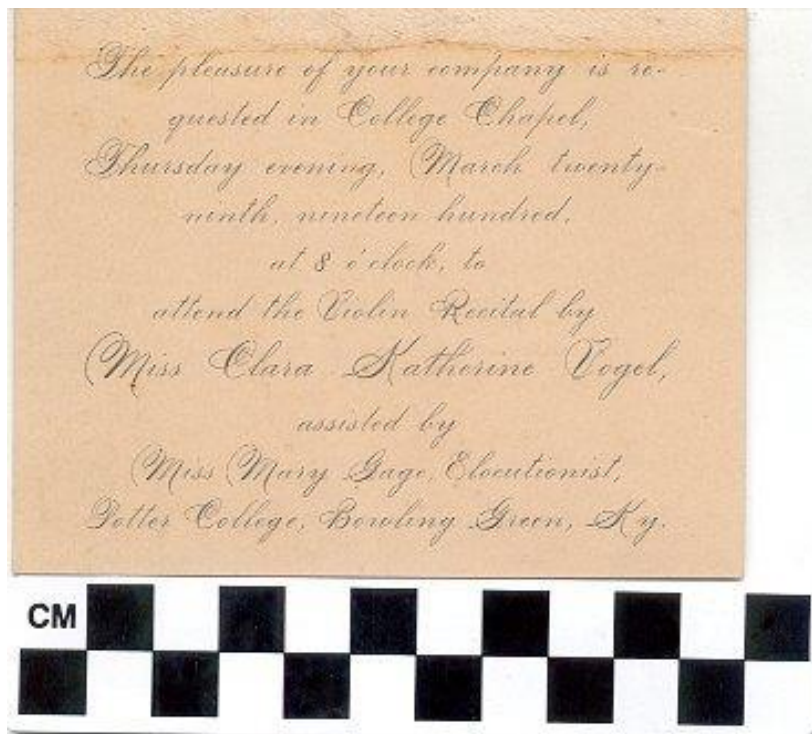 The pleasure of your company is re-
quested in College Chapel,
Thursday evening, March twenty-
ninth, nineteen hundred,
at 8 o'clock, to
attend the Violin Recital by
Miss Clara Katherine Vogel,
assisted by
Miss Mary Gage, Elocutionist,
Potter College, Bowling Green, Ky.
CM